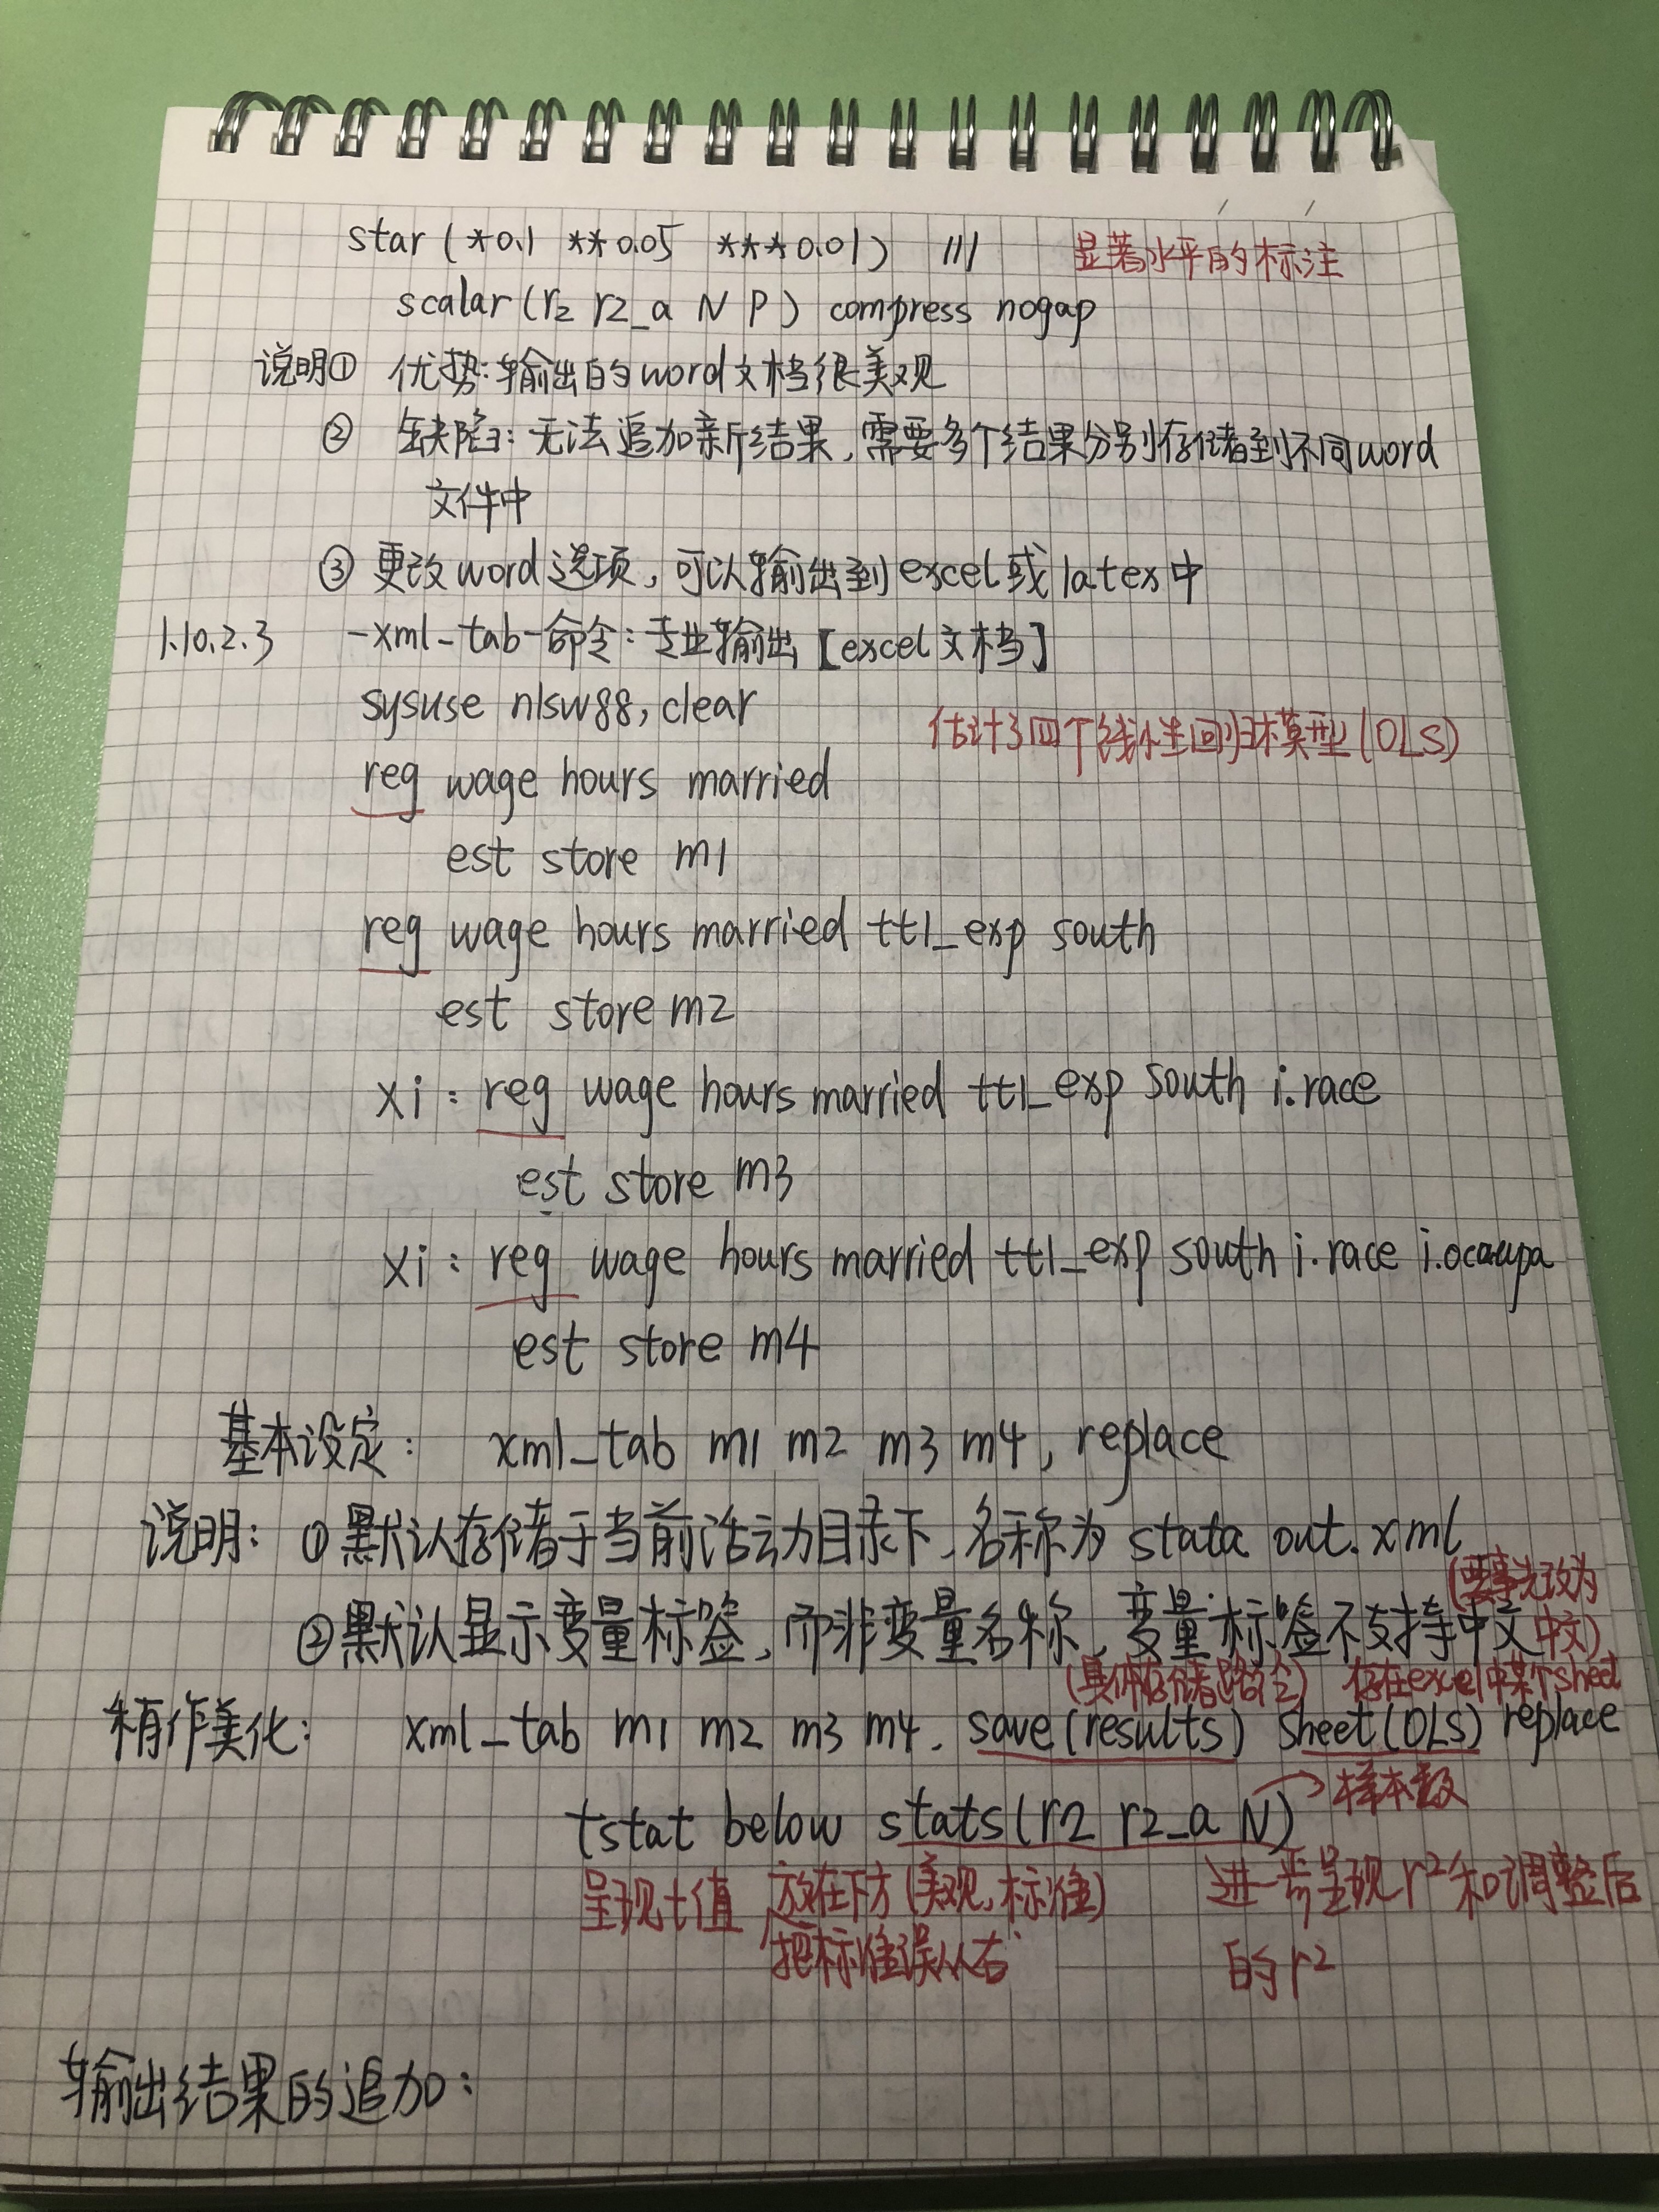 star (*0.1 **0.05 ***0.01) /// 显著水平的标注
scalar (r2 r2_a N P) compress nogap
说明① 优势:输出的word文档很美观
② 缺陷:无法追加新结果,需要多个结果分别存储到不同word
文件中
③ 更改word选项,可以输出到excel或latex中
1.10.2.3 -xml_tab-命令:专业输出【excel文档】
sysuse nlsw88, clear
估计了四个线性回归模型(OLS)
reg wage hours married
est store m1
reg wage hours married ttl_exp south
est store m2
xi : reg wage hours married ttl_exp south i.race
est store m3
xi : reg wage hours married ttl_exp south i.race i.occupa
est store m4
基本设定: xml_tab m1 m2 m3 m4, replace
说明: ①默认存储于当前活动目录下,名称为 stata out.xml
(要事先改为
②默认显示变量标签,而非变量名称,变量标签不支持中文 中文)
(具体存储路径) 存在excel中某个sheet
稍作美化: xml_tab m1 m2 m3 m4. save(results) sheet(OLS) replace
tstat below stats(r2 r2_a N) → 样本数
呈现t值 放在下方(美观,标准) 进一步呈现r²和调整后
把标准误从右 的r²
输出结果的追加: